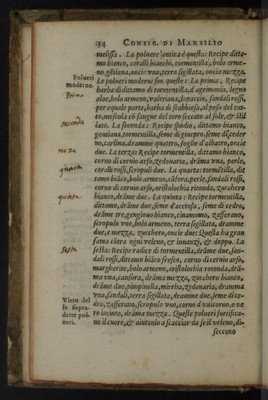 34 CONSIG. DI MARSILIO
melissa. La poluere antica è questa: Recipe ditta-
mo bianco, coralli bianchi, tormentilla, bolo arme-
no, gẽtiana, oncie vna, terra sigillata, oncia mezza.
Polueri
moderne.
Le polueri moderni son queste: La prima. Recipe
Prima
barba di dittamo di tormentilla, d'agrimonia, legno
aloe, bolo armeno, valeriana, sandali rossi,
per equale parte, barba di scabbiosa, al peso del tut-
to, mescola cõ sangue del toro seccato al sole, & stil
seconda
lato. La seconda: Recipe spodio, dittamo bianco,
gentiana, tormentilla, seme di gineepro, seme di cedre
no, carlina, dramme quattro, foglie d'albaro, oncie
terza
due. La terza: Recipe tormentilla, dittamo bianco,
corno di ceruio arso, zedoaria, dramma vna, perle,
quarta
coralli rossi, scropuli due. La quarta: tormẽtilla, dit
tamo biãco, bolo armeno, cãfora, perle, sandali rossi,
corno di ceruio arso, aristolochia rotonda, zucchero
quinta
bianco, drãme due. La quinta: Recipe tormentilla,
dittamo, drãme due, seme d'acetosa, seme di cedro,
drãme tre, gengiouo bianco, cinamomo, zafferano,
scropulo vno, bolo armeno, terra sigillata, dramme
due, e mezza, zucchero, oncie due: Questa ha gran
fama cõtra ogni veleno, et innanzi, & doppo. La
sesta
sesta: Recipe radice di tormentilla, drãme due, san-
dali rossi, dittamo biãco fresco, corno di ceruio arso,
margherite, bolo armeno, aristolochia rotonda, drã-
ma vna, canfora, drãma mezza, zucchero bianco,
drãme due, pimpinella, mirrha, zedoaria, dramma
vna, sandali, terra sigillata, dramme due, seme di ce-
dro, zafferano, scropulo vno, corno d'vnicorno, o ve
Virtu del
le sopra-
dette pol-
ueri.
ro iacinto, drãma mezza. Queste polueri fortifica-
no il cuore, & aiutanlo a scacciar da se il veleno, di-
seccono